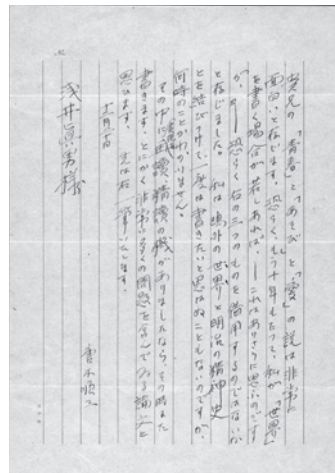 貴兄の「青春」と「あそび」と「愛」の説は非常に
面白いと存じます。恐らく、もう十年もたって、私が「世界」
を書く場合が若しあれば、――これはありさうに思ふのです
が、――恐らく右の三つのものを借用するのではないか
と存じました。私は鴎外の世界と明治の精神史
とを結びつけて一度は書きたいと思はぬこともないのですが、
何時のことかわかりません。
その中に再讀、精讀の機がありましたなら、その時また
書きます。とにかく非常に多くの問題を含んでゐる論文と
思ひます。先は右一筆いたします。
十二月二十日
唐木順三
浅井眞男様